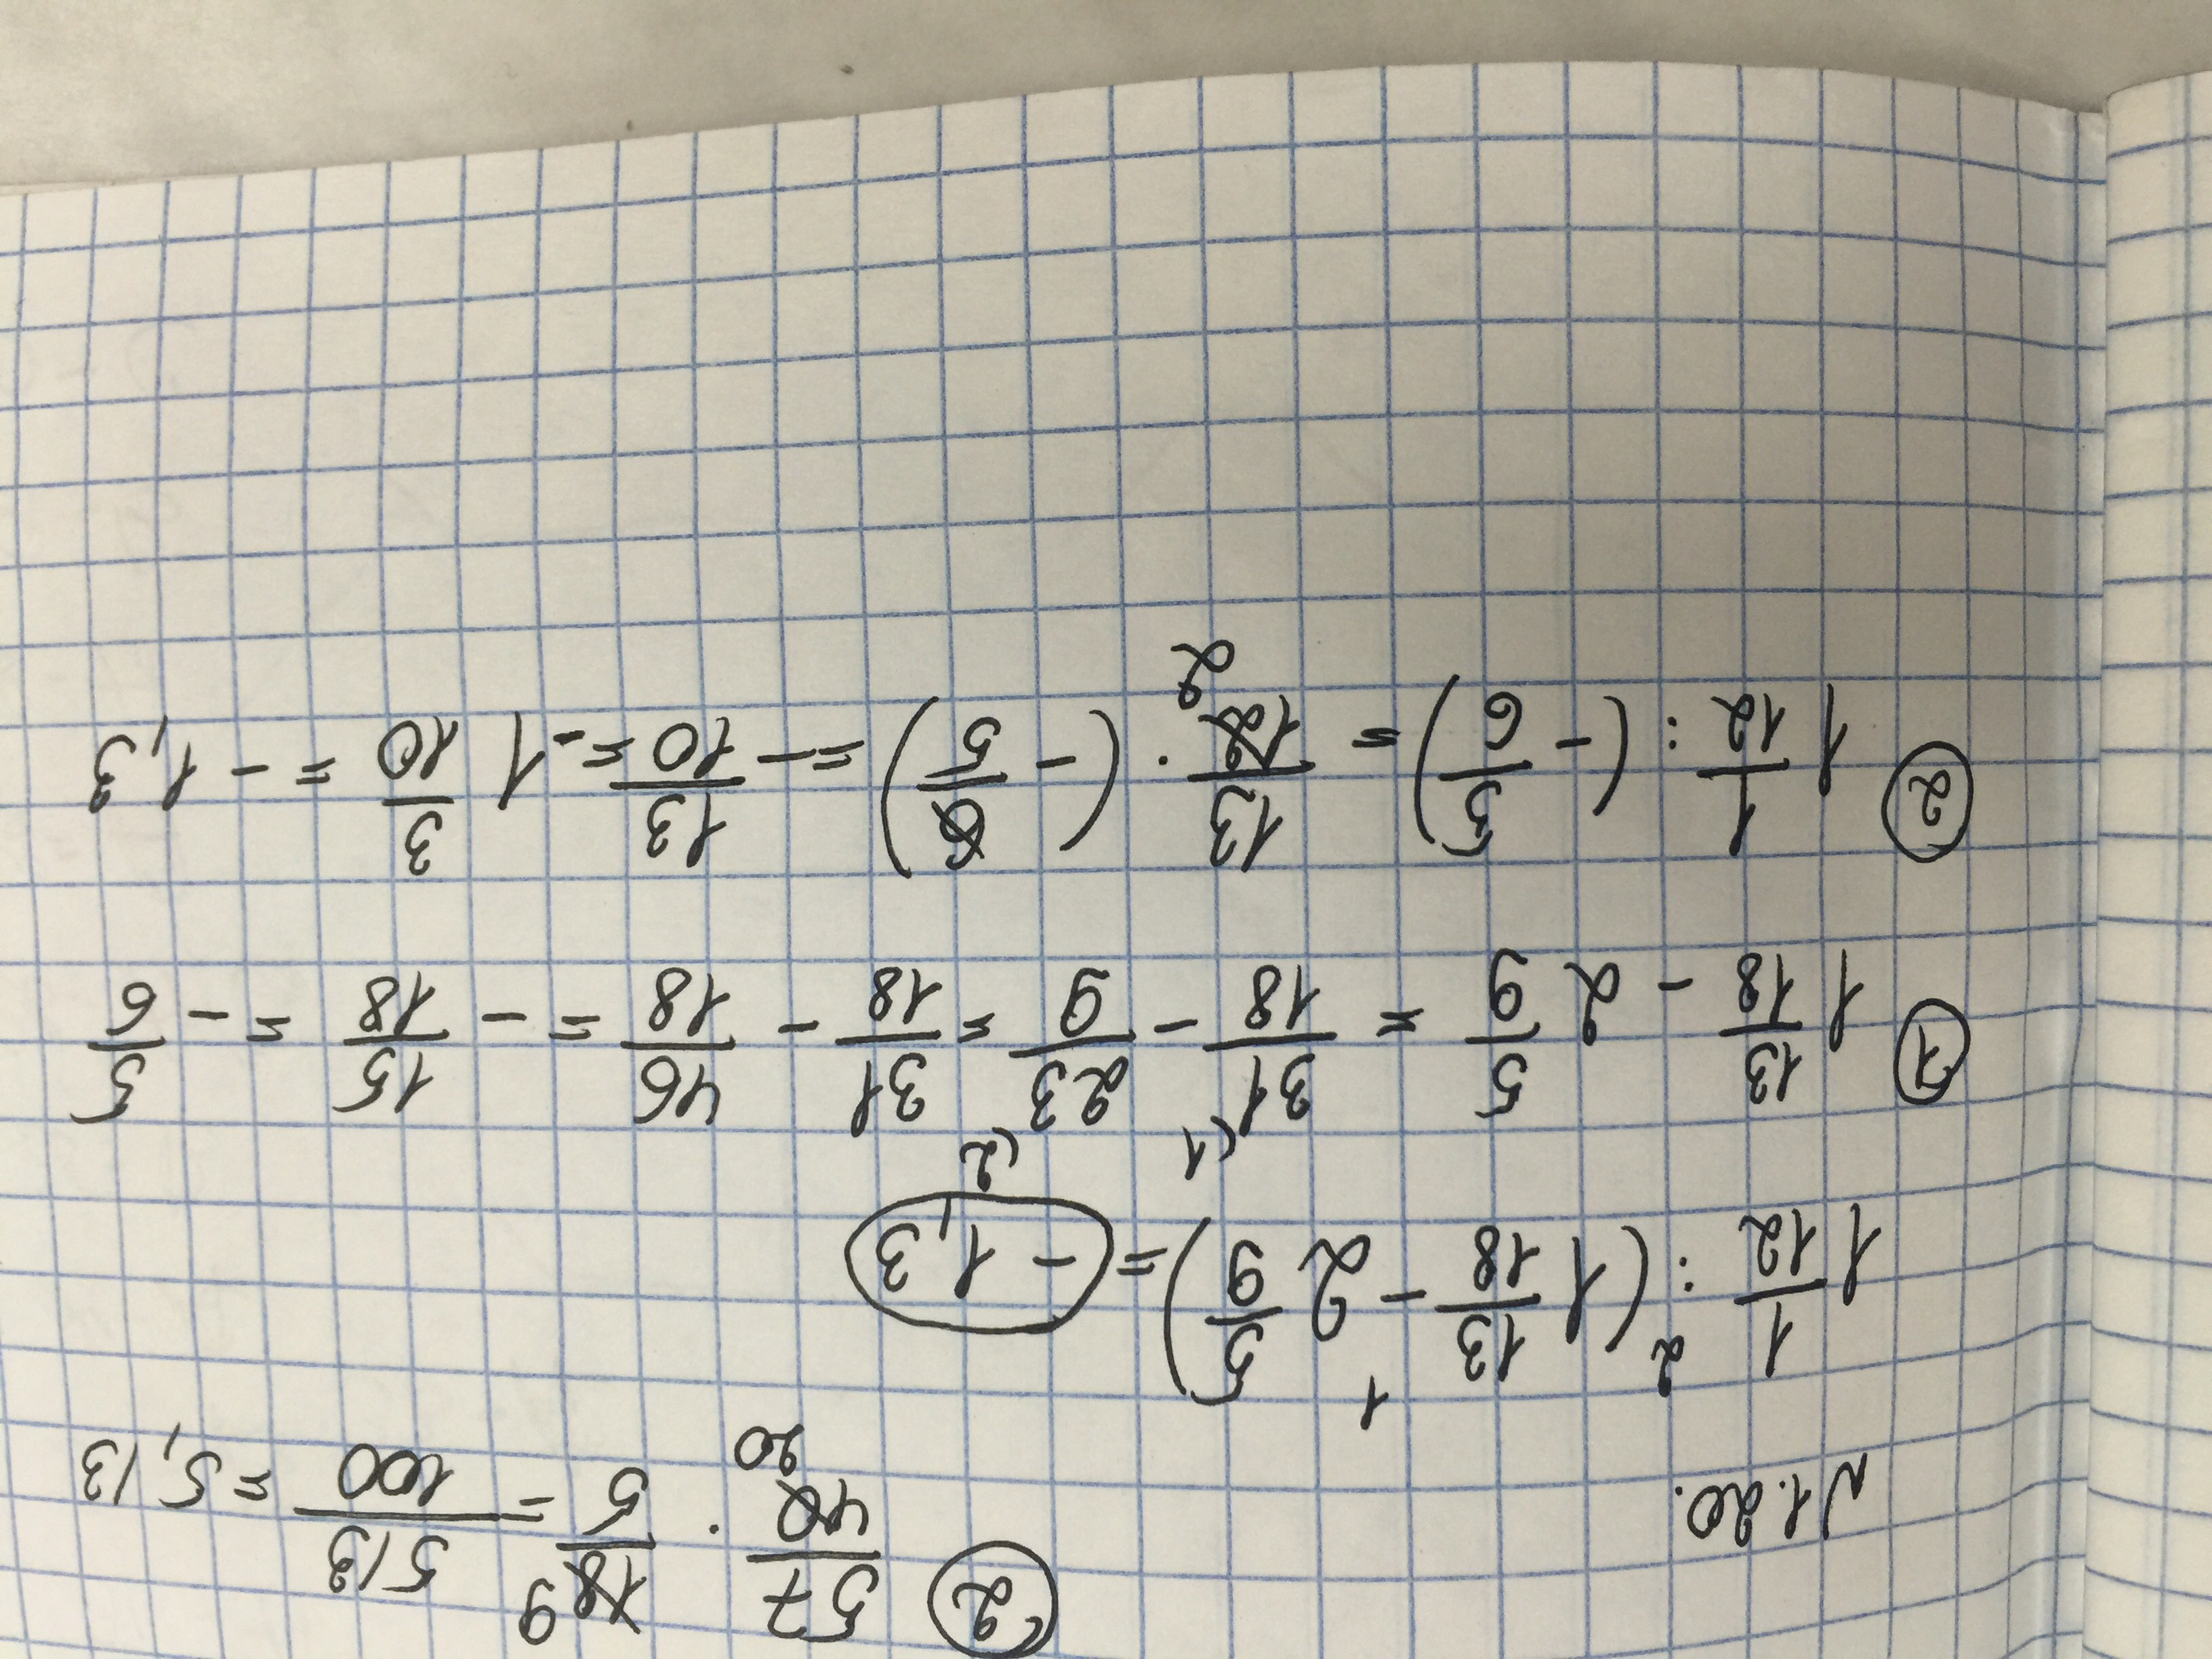 ② 57/40 · 18/5 = 513/100 = 5,13
20 9
N1.20.
1 1/12 : (1 13/18 - 2 5/9) = -1,3
2 1
① 1 13/18 - 2 5/9 = 31/18 (1 - 23/9 (2 = 31/18 - 46/18 = - 15/18 = - 5/6
② 1 1/12 : (- 5/6) = 13/12 · (- 6/5) = - 13/10 = -1 3/10 = -1,3
2